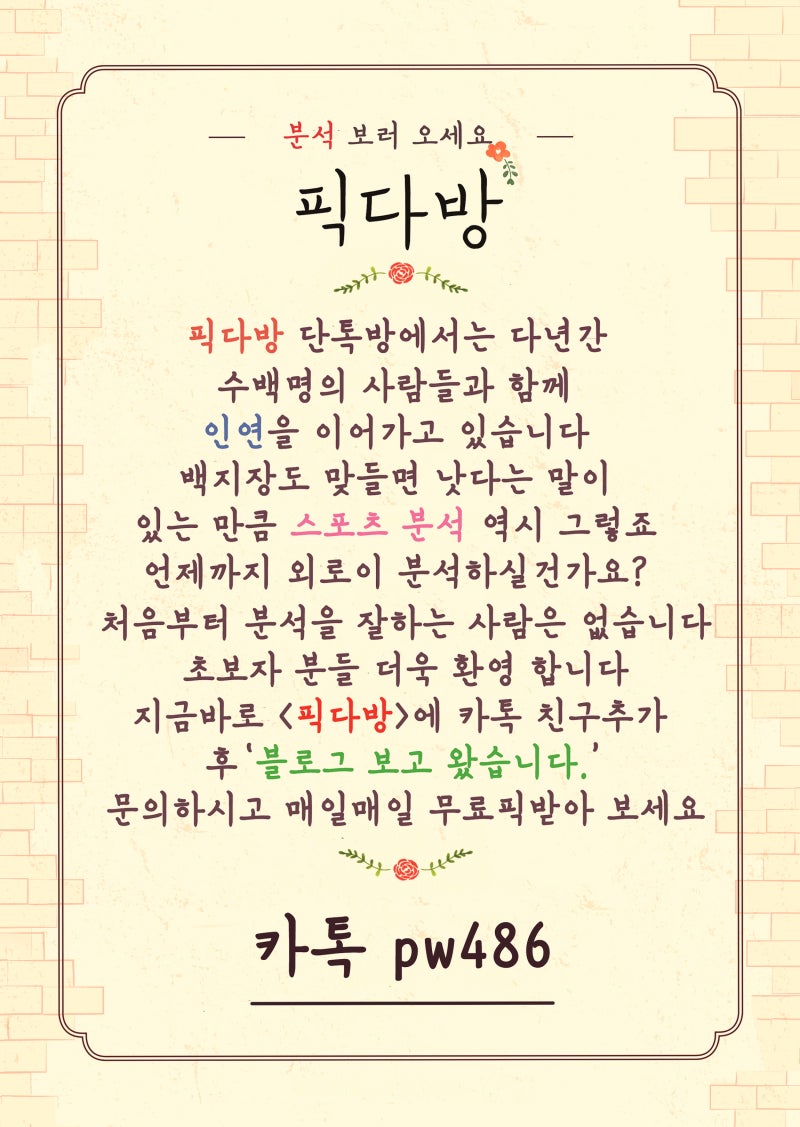 분석 보러 오세요
픽다방
픽다방 단톡방에서는 다년간
수백명의 사람들과 함께
인연을 이어가고 있습니다
백지장도 맞들면 낫다는 말이
있는 만큼 스포츠 분석 역시 그렇죠
언제까지 외로이 분석하실건가요?
처음부터 분석을 잘하는 사람은 없습니다
초보자 분들 더욱 환영 합니다
지금바로 <픽다방>에 카톡 친구추가
후 '블로그 보고 왔습니다.'
문의하시고 매일매일 무료픽받아 보세요
카톡 pw486